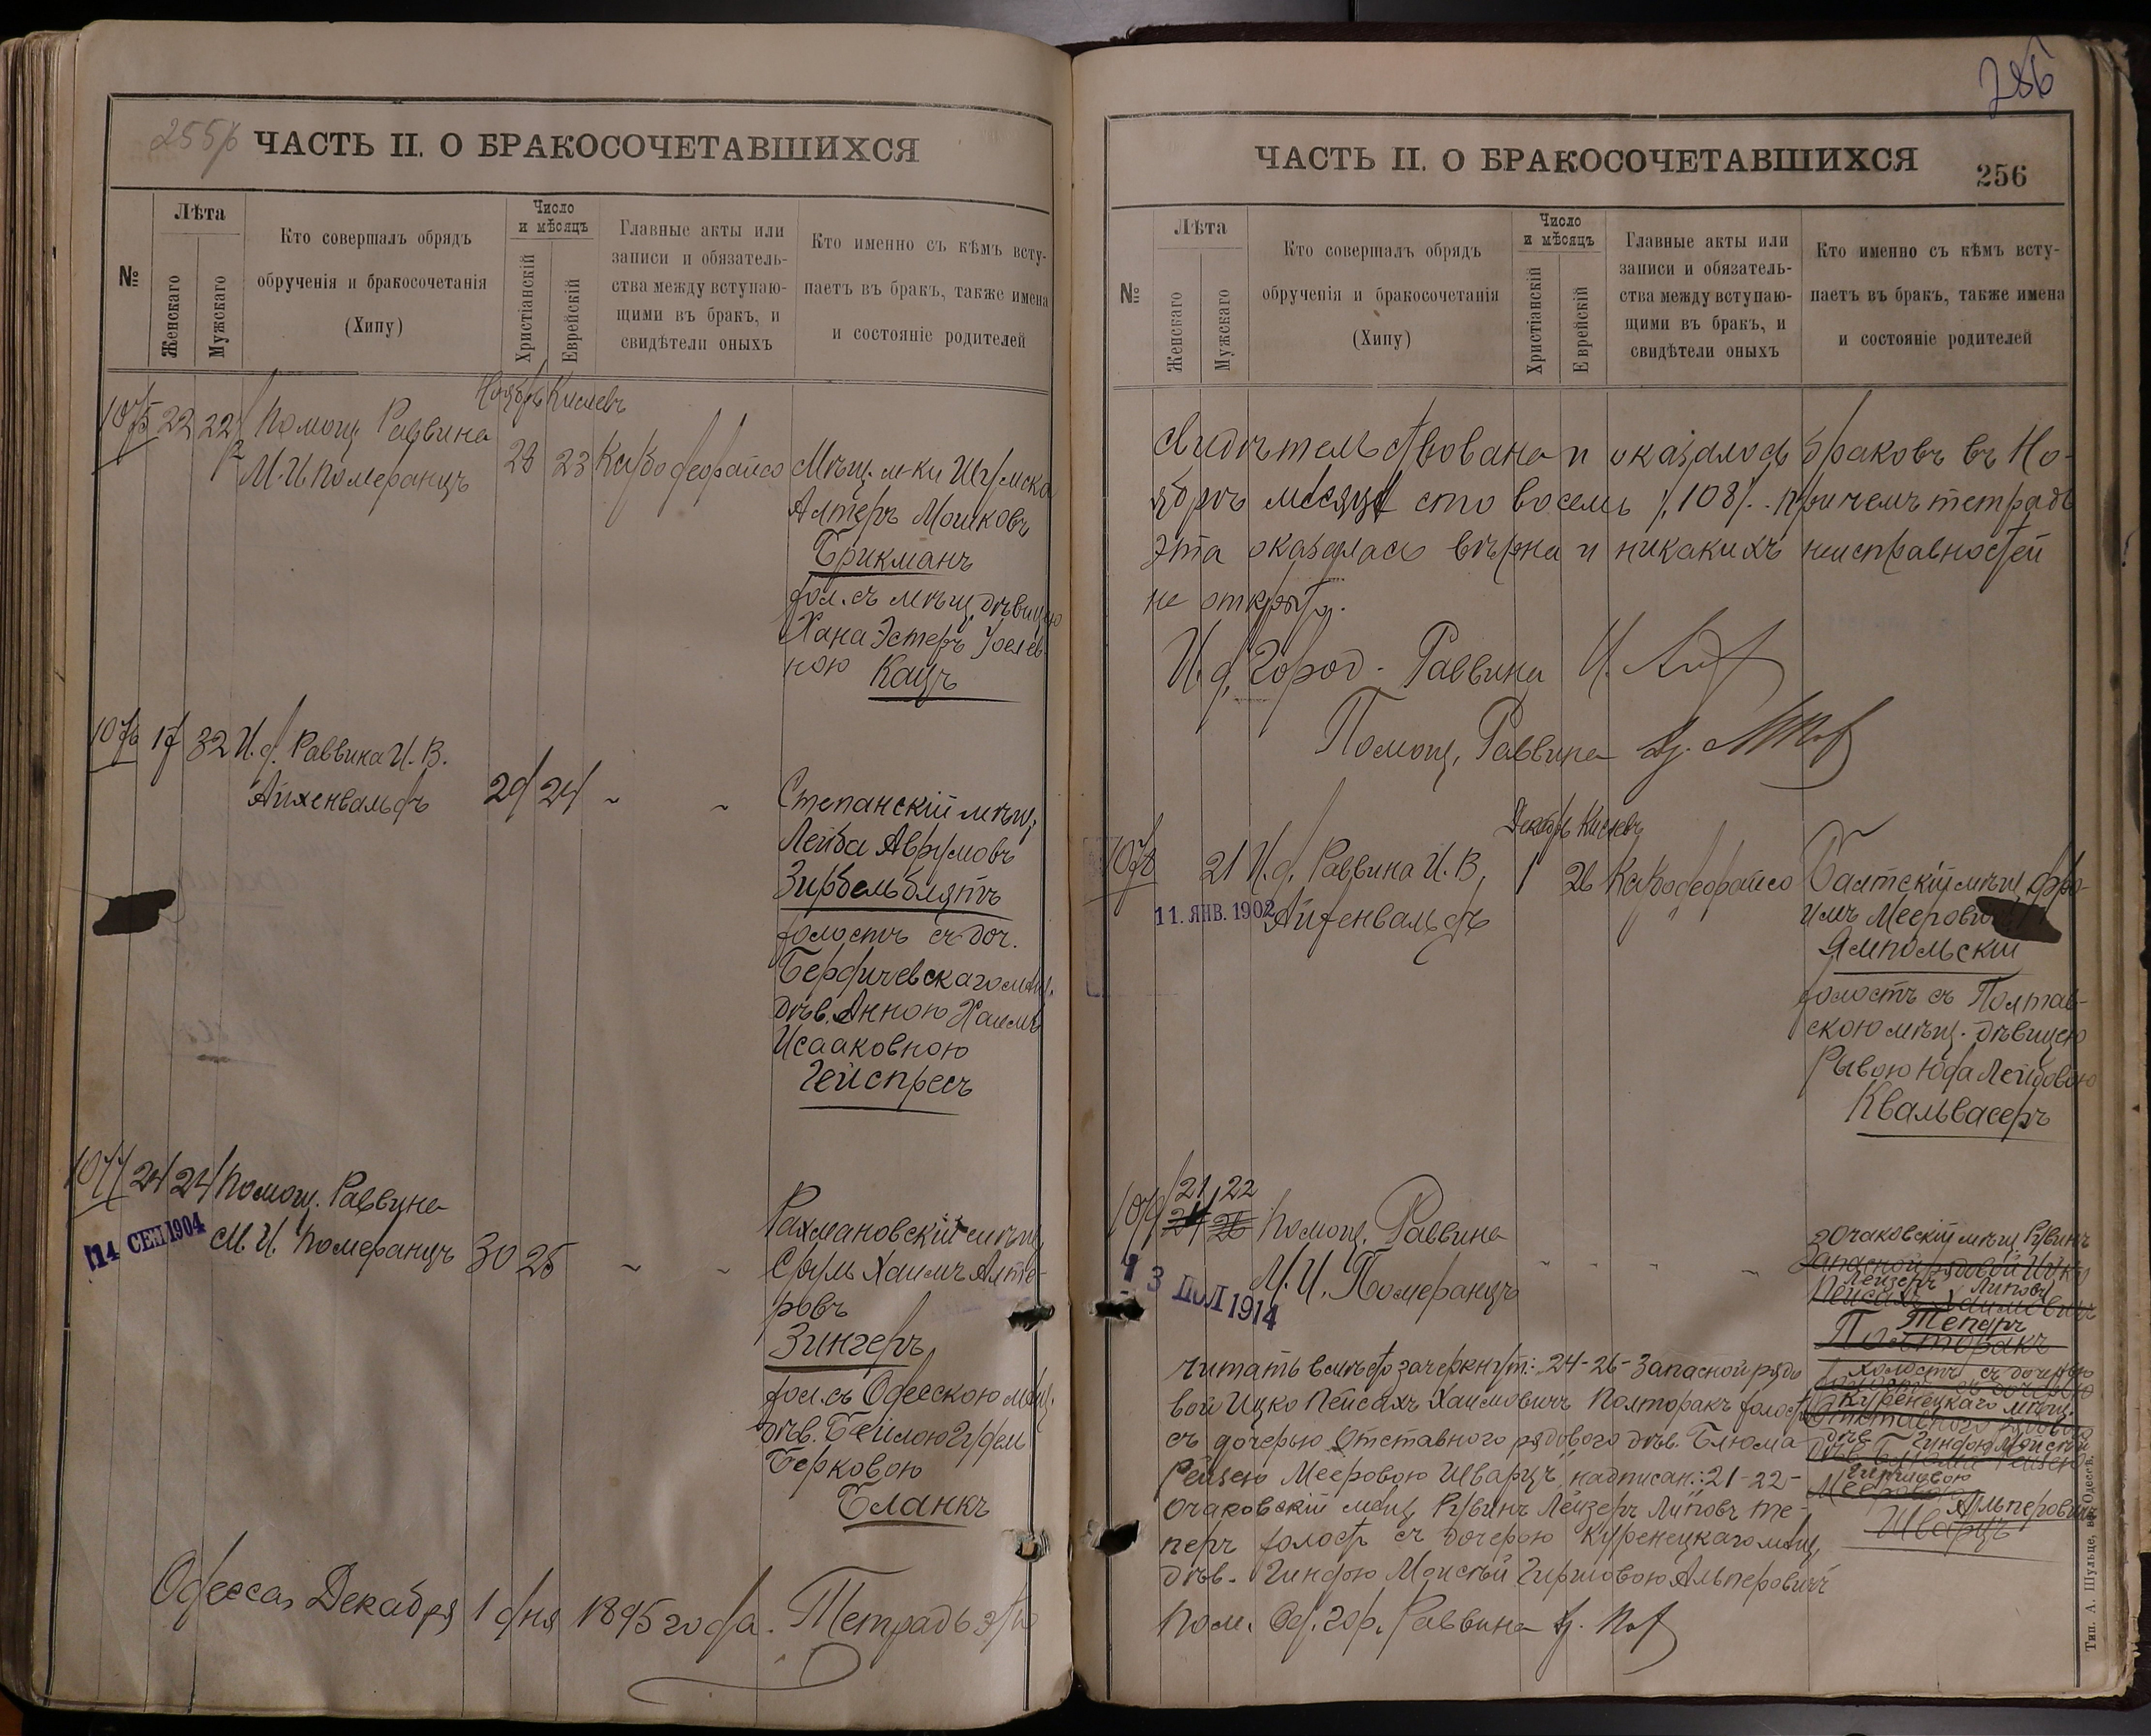 255б ЧАСТЬ II. О БРАКОСОЧЕТАВШИХСЯ
№
Лѣта
Женскаго
Мужскаго
Кто совершалъ обрядъ
обрученія и бракосочетанія
(Хипу)
Число
и мѣсяцъ
Христіанскій
Еврейскій
Главные акты или
записи и обязатель-
ства между вступаю-
щими въ бракъ, и
свидѣтели оныхъ
Кто именно съ кѣмъ всту-
паетъ въ бракъ, также имена
и состояніе родителей
Ноябрь Кислевъ
1075 22 22 Помощ. Раввина
М. И. Померанцъ
23 Мѣщ. м-ки Шумска
Алтеръ Мошковъ
Брикманъ
хол. съ мѣщ. дѣвицею
Хана Эстеръ Іосев-
ною Кацъ
1076 17 32 И. д. Раввина И. В.
Айхенвальдъ 29 24 ~ ~
Степанскій мѣщ.
Лейба Аврумовъ
Зирбельблятъ
холостъ съ доч.
Бердичевскаго мѣщ.
дѣв. Анною Хаимъ
Исааковною
Гейспресъ
1077 24 24 Помощ. Раввина
14 СЕН 1904
М. И. Померанцъ 30 25 ~ ~
Рахмановскій мѣщ.
Сруль Хаимъ Алте-
ровъ
Зингеръ
хол. съ Одесскою мѣщ.
дѣв. Бейлою Гудель
Берковою
Бланкъ
Одесса, Декабря 1 дня 1895 года. Тетрадь эта
286
ЧАСТЬ II. О БРАКОСОЧЕТАВШИХСЯ 256
№
Лѣта
Женскаго
Мужскаго
Кто совершалъ обрядъ
обрученія и бракосочетанія
(Хипу)
Число
и мѣсяцъ
Христіанскій
Еврейскій
Главные акты или
записи и обязатель-
ства между вступаю-
щими въ бракъ, и
свидѣтели оныхъ
Кто именно съ кѣмъ всту-
паетъ въ бракъ, также имена
и состояніе родителей
свидѣтельствована и оказалось браковъ въ Но-
ябрѣ мѣсяцѣ сто восемь /108/. причемъ тетрадь
эта оказалась вѣрна и никакихъ неисправностей
не открыто.
И. д. Город. Раввина И.
Помощ. Раввина
Декабрь Кислевъ
1078 21 И. д. Раввина И. В. 1 26
11. ЯНВ. 1902
Айхенвальдъ
Балтскій мѣщ. Фро-
имъ Мееровичъ
Ямпольскій
холостъ съ Полтав-
скою мѣщ. дѣвицею
Рывою Юда Лейбовою
Квальвасеръ
1079 21 22
24 26 Помощ. Раввина
М. И. Померанцъ ~ ~ ~ ~
13 ІЮЛ 1914
Очаковскій мѣщ. Рувинъ
Запасной рядовой Ицко
Лейзеръ Липовъ
Пейсахъ Хаимовичъ
Теперъ
Полторакъ
холостъ съ дочерью
холостъ съ дочерью
Куренецкаго мѣщ.
Отставного рядового
дѣв. Гиндою Моисей
дѣв. Блюма Рейзею
Гиршовою
Мееровою
Альперовичъ
Шварцъ
Читать вмѣсто зачеркнут: 24-26-Запасной рядо
вой Ицко Пейсахъ Хаимовичъ Полторакъ холостъ
съ дочерью Отставного рядового дѣв. Блюма
Рейзею Мееровою Шварцъ, надписан: 21-22-
Очаковскій мѣщ. Рувинъ Лейзеръ Липовъ Те-
перъ холостъ съ дочерью Куренецкаго мѣщ.
дѣв. Гиндою Моисей Гиршовою Альперовичъ
Пом. Од. Гор. Раввина
Тип. А. Шульце, въ Одессѣ.